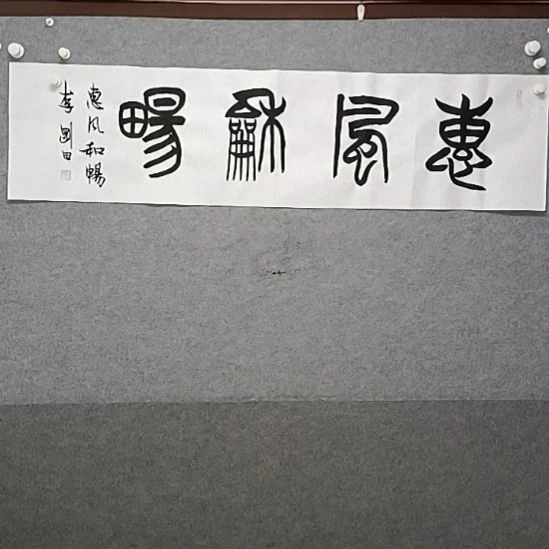 惠風龢暢
惠风和暢
李剛田